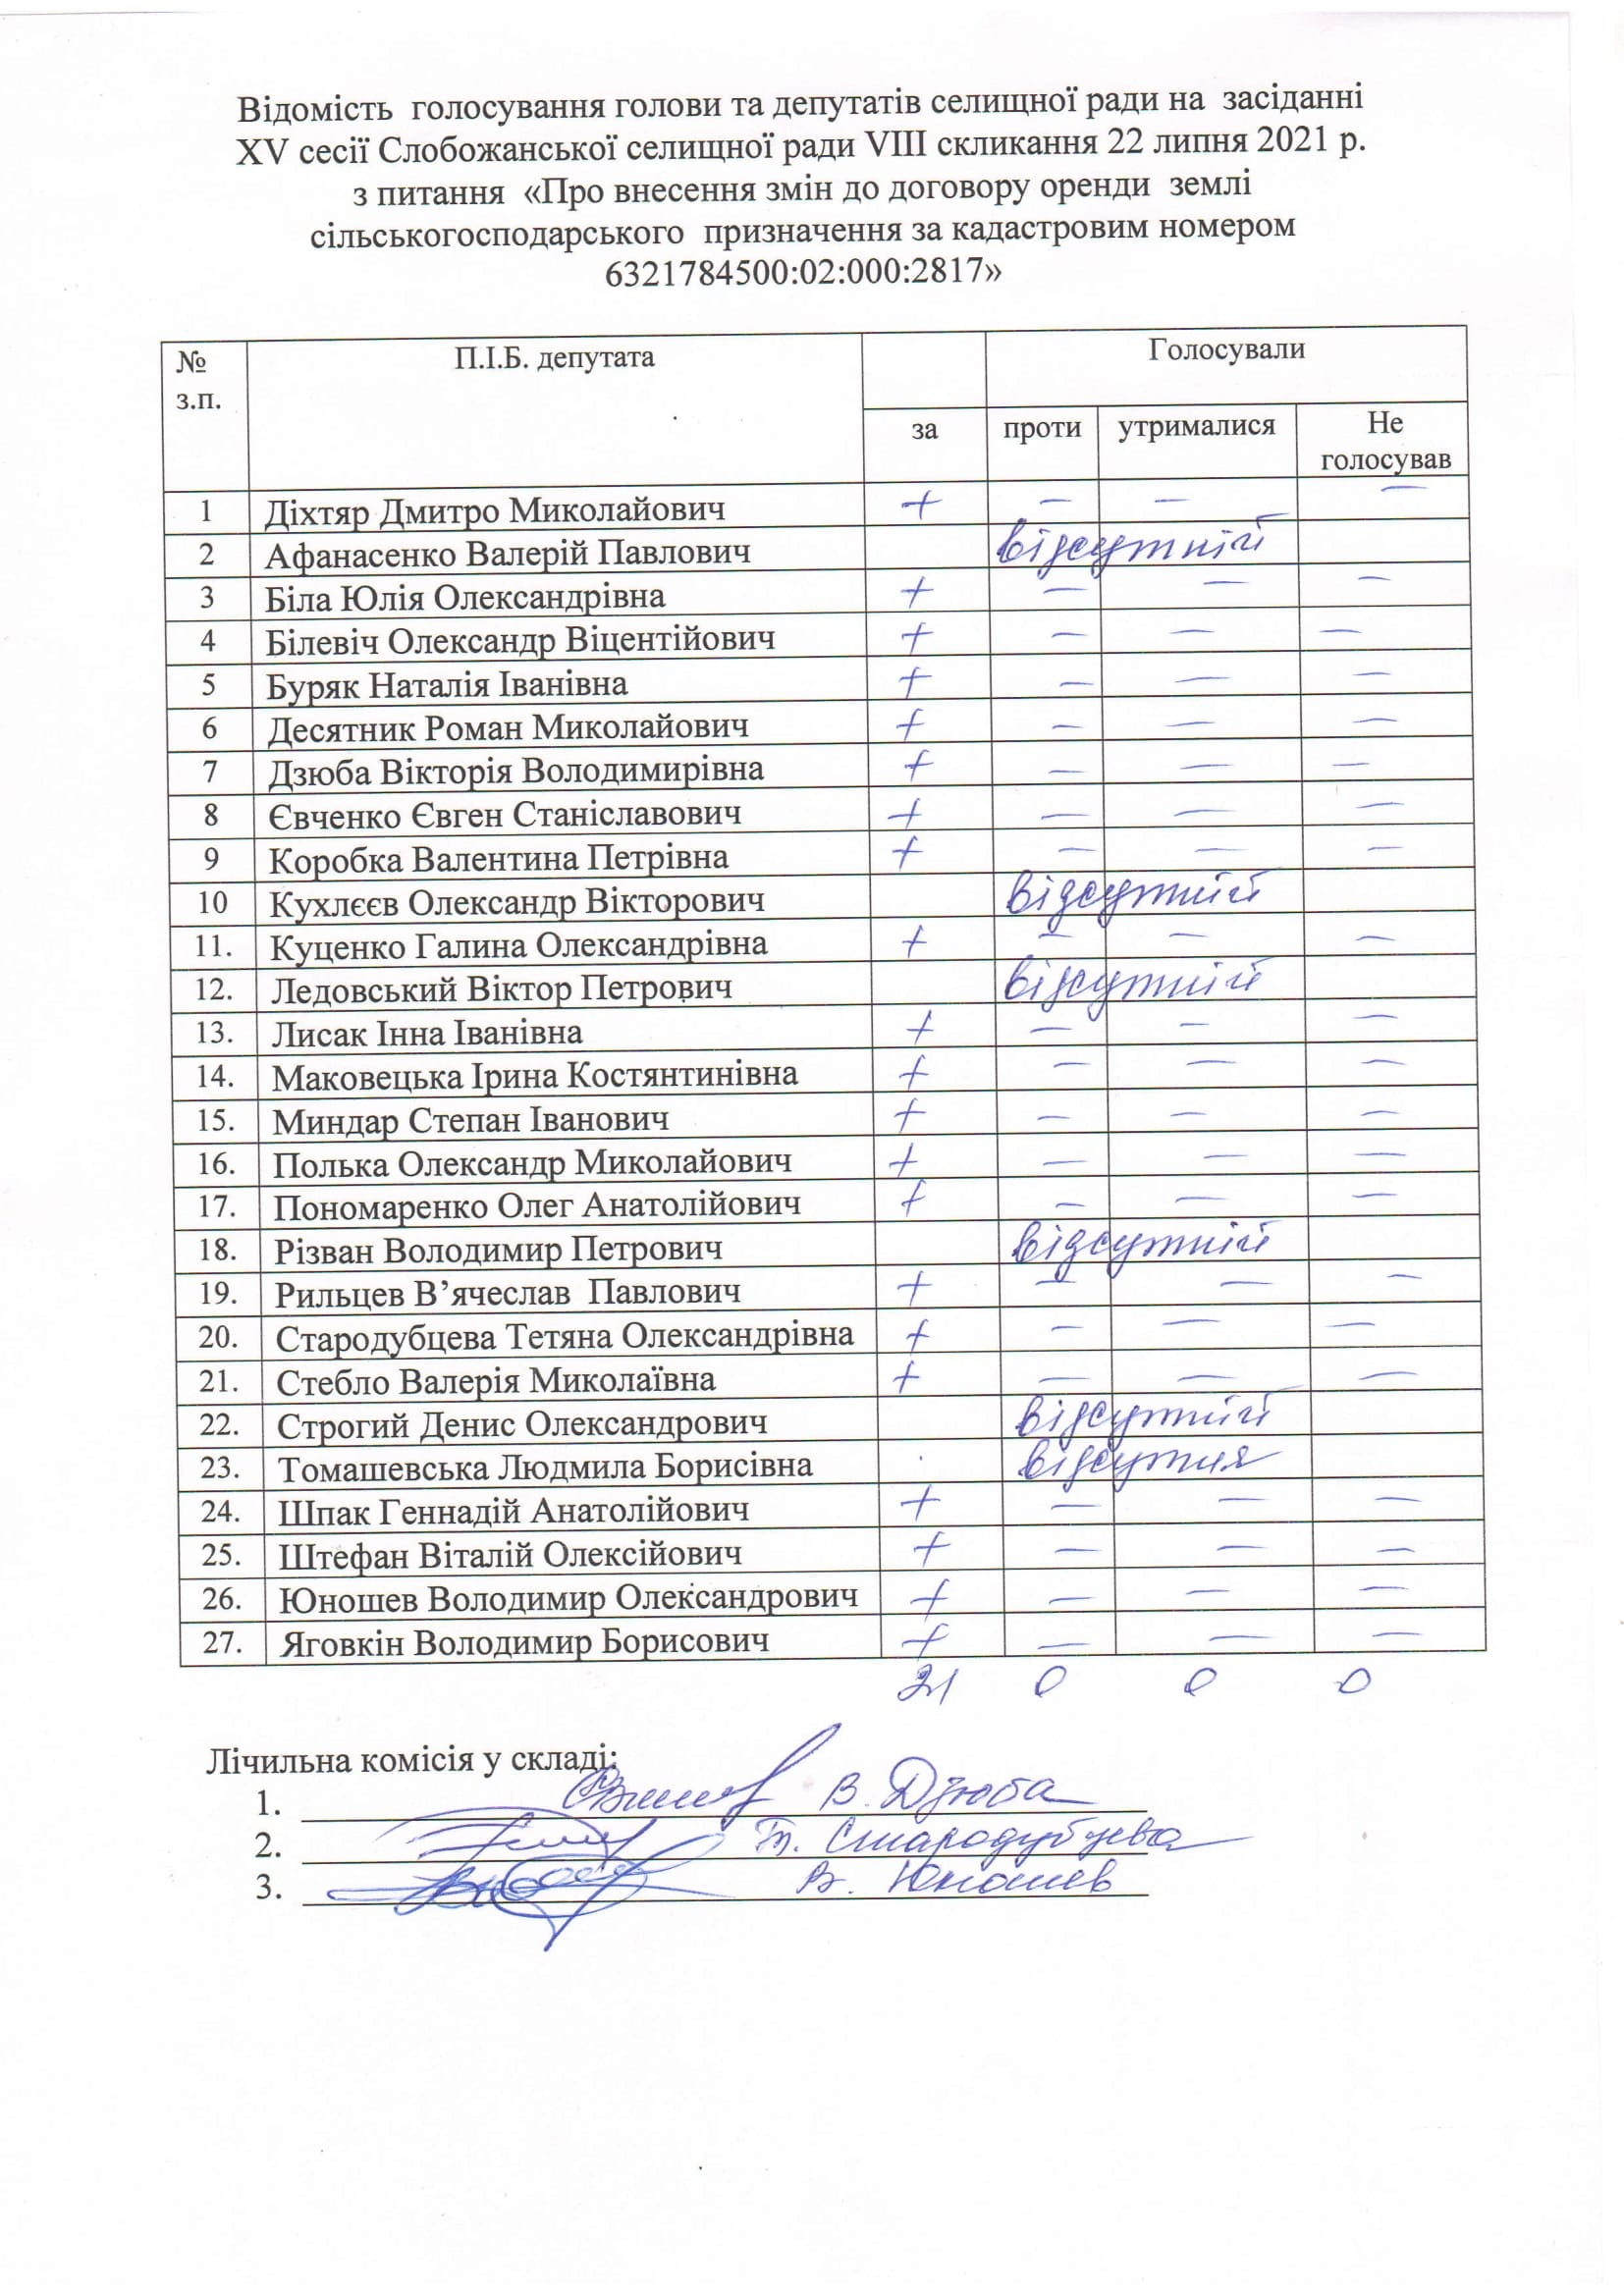 Відомість голосування голови та депутатів селищної ради на засіданні
XV сесії Слобожанської селищної ради VIII скликання 22 липня 2021 р.
з питання «Про внесення змін до договору оренди землі
сільськогосподарського призначення за кадастровим номером
6321784500:02:000:2817»
№ з.п. П.І.Б. депутата Голосували
за проти утрималися Не голосував
1 Діхтяр Дмитро Миколайович + — — —
2 Афанасенко Валерій Павлович відсутній
3 Біла Юлія Олександрівна + — — —
4 Білевіч Олександр Віцентійович + — — —
5 Буряк Наталія Іванівна + — — —
6 Десятник Роман Миколайович + — — —
7 Дзюба Вікторія Володимирівна + — — —
8 Євченко Євген Станіславович + — — —
9 Коробка Валентина Петрівна + — — —
10 Кухлєєв Олександр Вікторович відсутній
11. Куценко Галина Олександрівна + — — —
12. Ледовський Віктор Петрович відсутній
13. Лисак Інна Іванівна + — — —
14. Маковецька Ірина Костянтинівна + — — —
15. Миндар Степан Іванович + — — —
16. Полька Олександр Миколайович + — — —
17. Пономаренко Олег Анатолійович + — — —
18. Різван Володимир Петрович відсутній
19. Рильцев В’ячеслав Павлович + — — —
20. Стародубцева Тетяна Олександрівна + — — —
21. Стебло Валерія Миколаївна + — — —
22. Строгий Денис Олександрович відсутній
23. Томашевська Людмила Борисівна відсутня
24. Шпак Геннадій Анатолійович + — — —
25. Штефан Віталій Олексійович + — — —
26. Юношев Володимир Олександрович + — — —
27. Яговкін Володимир Борисович + — — —
21 0 0 0
Лічильна комісія у складі:
1. В. Дзюба
2. Т. Стародубцева
3. В. Юношев